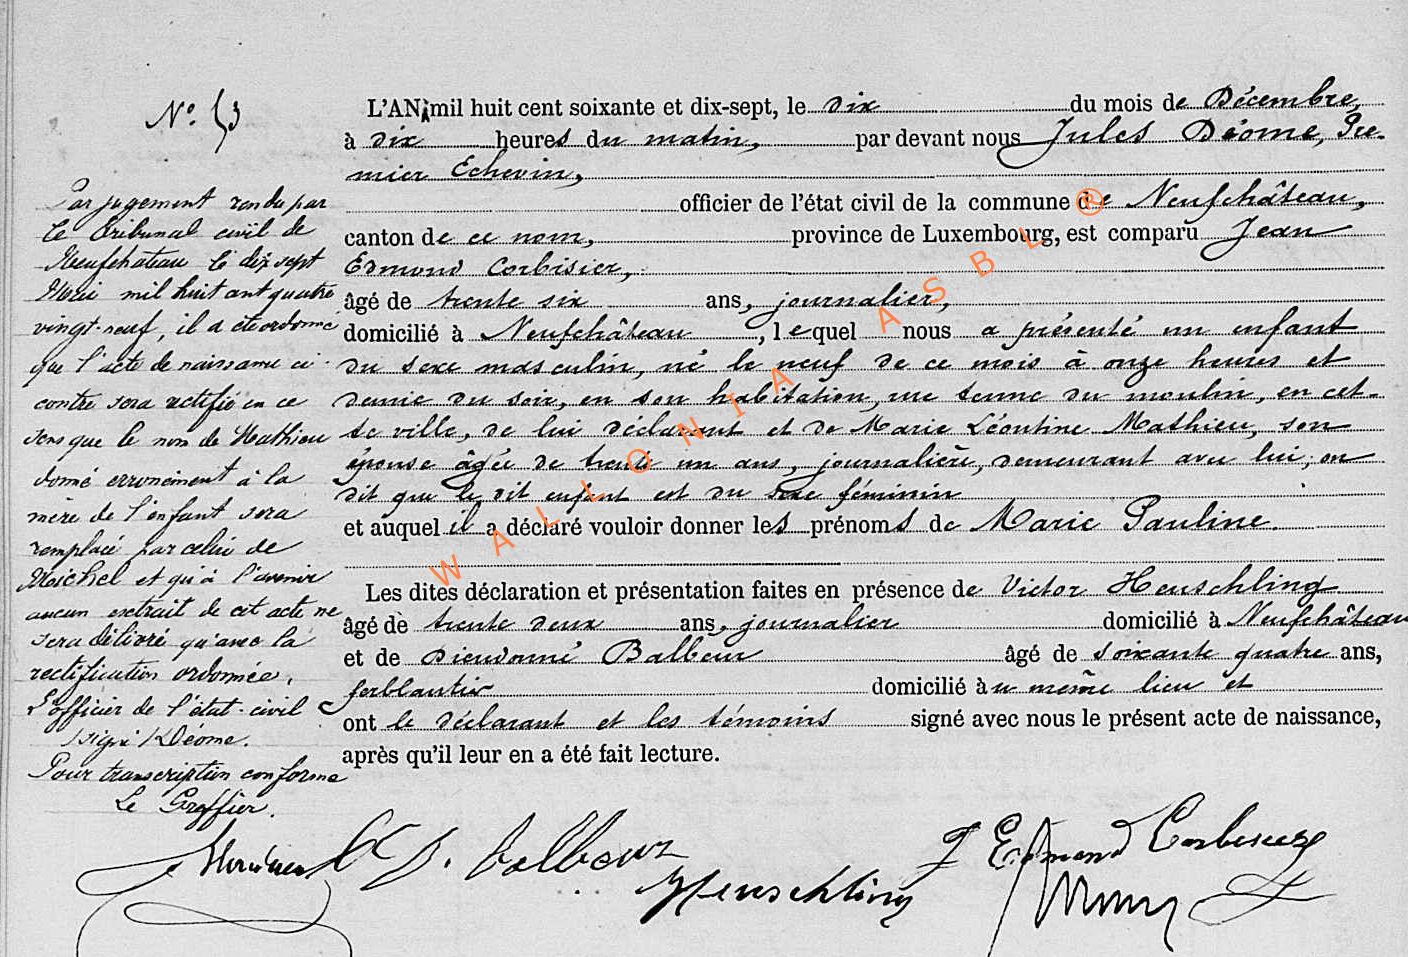 N° 53
Par jugement rendu par
le tribunal civil de
Neufchateau le dix sept
mil huit cent quatre
vingt-neuf, il a été ordonné
que l'acte de naissance ci-
contre sera rectifié en ce
sens que le nom de Mathieu
donné erronément à la
mère de l'enfant sera
remplacé par celui de
Michel et qu'à l'avenir
aucun extrait de cet acte ne
sera délivré qu'avec la
rectification ordonnée.
L'officier de l'état-civil
signé Déome.
Pour transcription conforme
Le Greffier.
L'AN mil huit cent soixante et dix-sept, le dix du mois de Décembre,
à dix heures du matin, par devant nous Jules Déome, Pre-
mier Echevin,
officier de l'état civil de la commune de Neufchâteau,
canton de ce nom, province de Luxembourg, est comparu Jean
Edmond Corbisier,
âgé de trente six ans, journalier,
domicilié à Neufchâteau, lequel nous a présenté un enfant
du sexe masculin, né le neuf de ce mois à onze heures et
demie du soir, en son habitation, rue tenne du moulin, en cet-
te ville, de lui déclarant et de Marie Léontine Mathieu, son
épouse âgée de trente un ans, journalière, demeurant avec lui; on
dit que le dit enfant est du sexe féminin
et auquel il a déclaré vouloir donner les prénoms de Marie Pauline.
Les dites déclaration et présentation faites en présence de Victor Heuschling
âgé de trente deux ans, journalier domicilié à Neufchâteau
et de Dieudonné Balbeur âgé de soixante quatre ans,
ferblantier domicilié au même lieu et
ont le déclarant et les témoins signé avec nous le présent acte de naissance,
après qu'il leur en a été fait lecture.
D. Balbeur
Heuschling
J Edmond Corbisier
WALLONIA ASBL ®